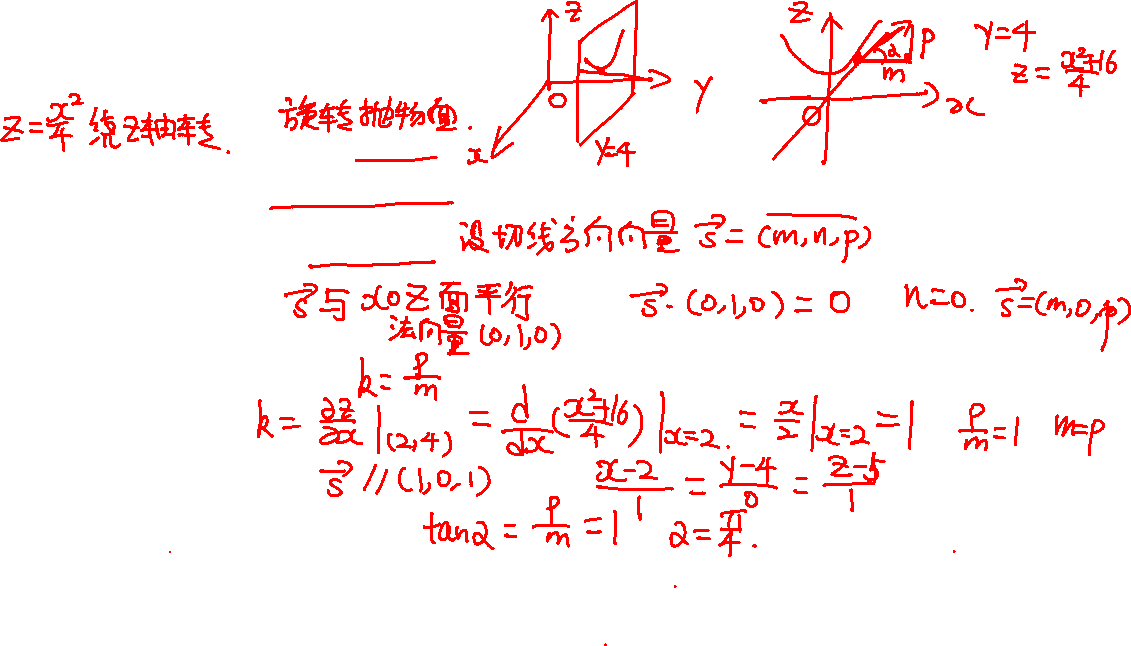 z=x²/4 绕z轴转. 旋转抛物面.
z
O
Y
x
Y=4
z
P
α
m
O
x
Y=4
z=(x²+16)/4
设切线方向向量 s⃗=(m,n,p)
s⃗与xoz面平行 s⃗·(0,1,0)=0 n=0. s⃗=(m,0,p)
法向量(0,1,0)
k=p/m
k=∂z/∂x|(2,4) =d/dx((x²+16)/4)|x=2. =x/2|x=2=1 p/m=1 m=p
s⃗//(1,0,1) (x-2)/1=(y-4)/0=(z-5)/1
tanα=p/m=1 α=π/4.